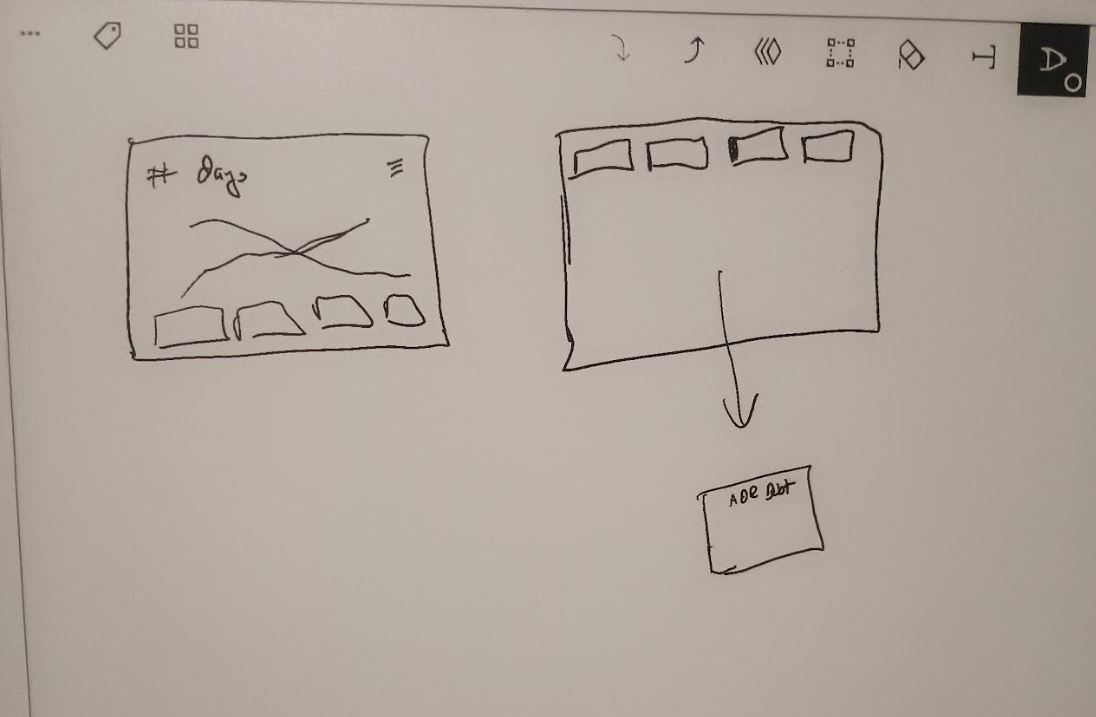 # Days
ADR Debt